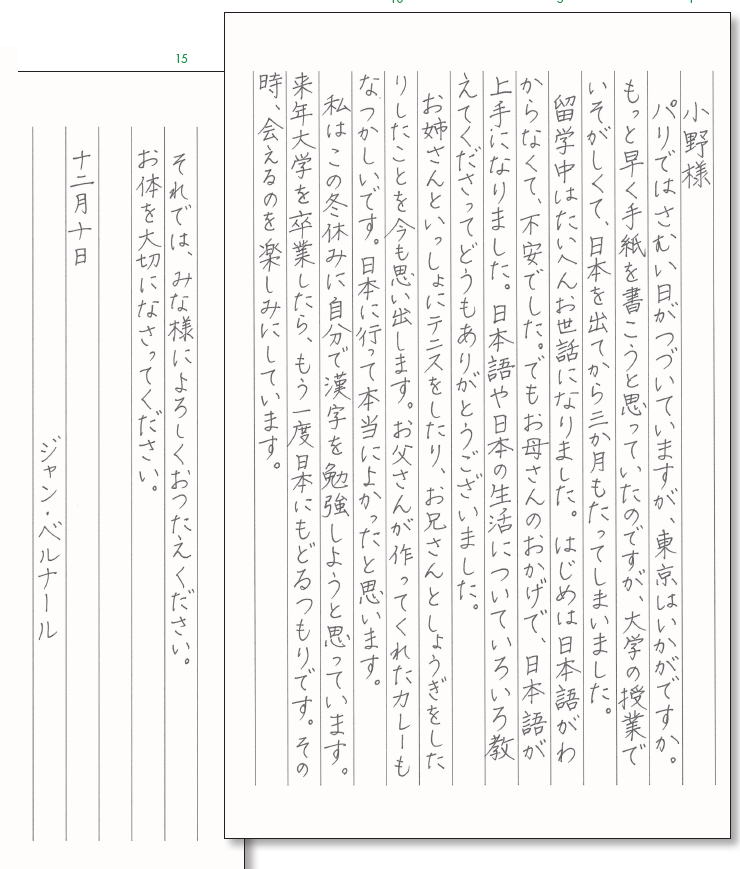 小野様
パリではさむい日がつづいていますが、東京はいかがですか。
もっと早く手紙を書こうと思っていたのですが、大学の授業で
いそがしくて、日本を出てから三か月もたってしまいました。
留学中はたいへんお世話になりました。はじめは日本語がわ
からなくて、不安でした。でもお母さんのおかげで、日本語が
上手になりました。日本語や日本の生活についていろいろ教
えてくださってどうもありがとうございました。
お姉さんといっしょにテニスをしたり、お兄さんとしょうぎをした
りしたことを今も思い出します。お父さんが作ってくれたカレーも
なつかしいです。日本に行って本当によかったと思います。
私はこの冬休みに自分で漢字を勉強しようと思っています。
来年大学を卒業したら、もう一度日本にもどるつもりです。その
時、会えるのを楽しみにしています。
15
それでは、みな様によろしくおつたえください。
お体を大切になさってください。
十二月十日
ジャン・ベルナール